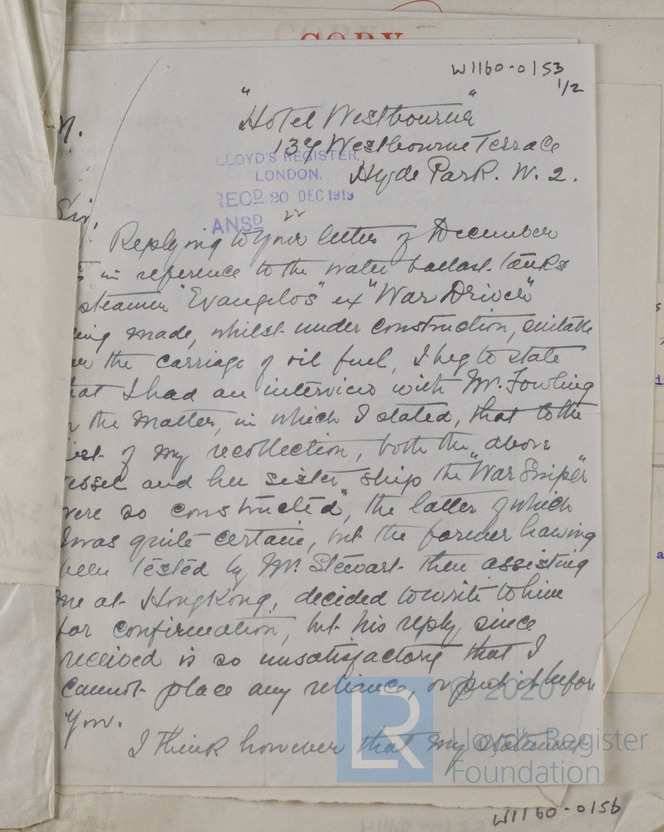 COPY
W1160-0153
1/2
"Hotel Westbourne"
134 Westbourne Terrace
Hyde Park. W. 2.
LLOYD'S REGISTER,
LONDON.
RECD 20 DEC 1919
ANSD 22
Sir,
Replying to your letter of December
in reference to the water ballast tanks
steamer "Evangelos" ex "War Driver"
ing made, whilst under construction, suitable
the carriage of oil fuel, I beg to state
hat I had an interview with Mr. Fowling
the matter, in which I stated, that to the
est of my recollection, both the "above
essel and her sister ship the "War Sniper"
were so constructed", the latter of which
I was quite certain, but the former having
been tested by Mr. Stewart then assisting
me at HongKong, decided to write to him
for confirmation, but his reply since
received is so unsatisfactory that I
cannot place any reliance, or put it before
you.
I think however that my statement
© 2020
Lloyd's Register
Foundation
LR
W1160-0156